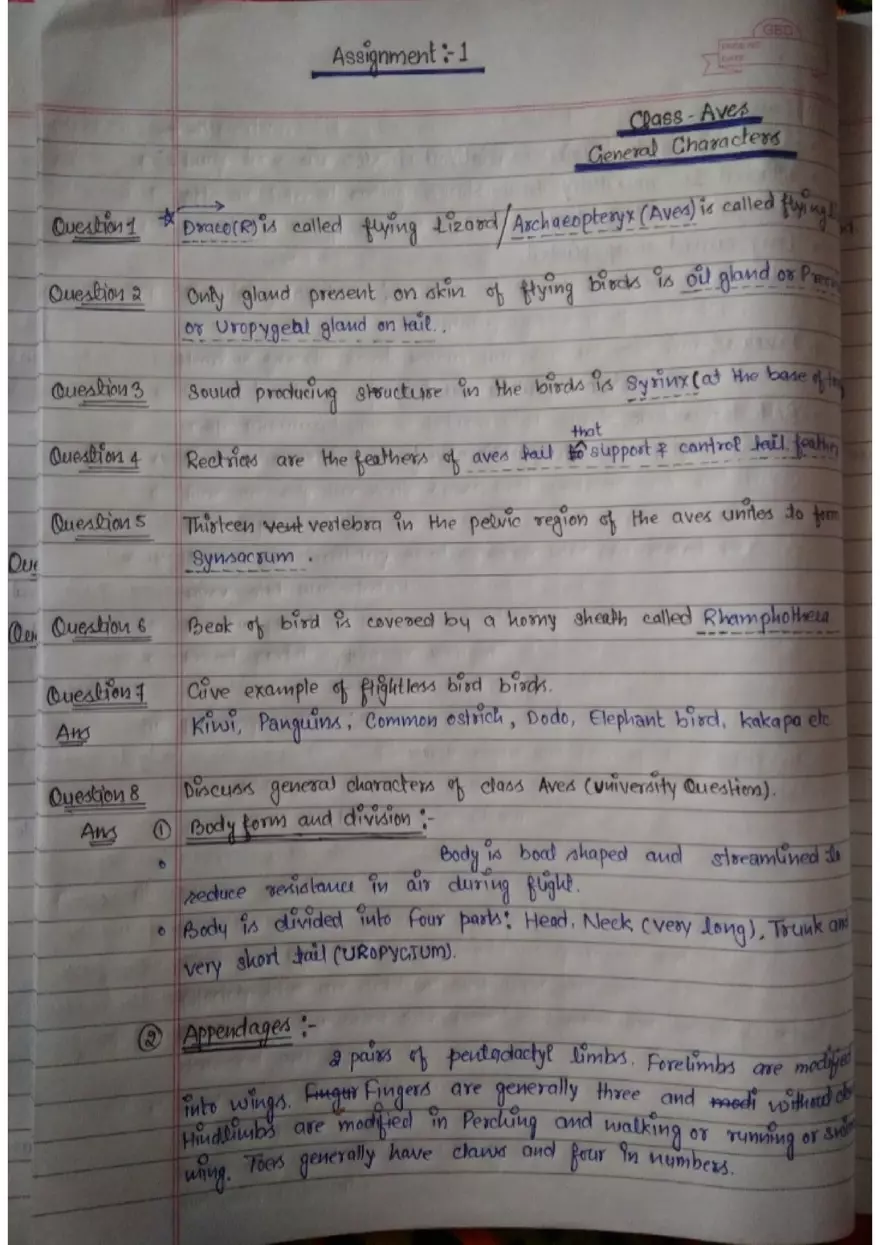 GBD
PAGE NO
DATE
Assignment :- 1
Class - Aves
General Characters
Question 1 Draco(R) is called flying lizard / Archaeopteryx (Aves) is called flying
Question 2 Only gland present on skin of flying birds is oil gland or
or Uropygetal gland on tail..
Question 3 Sound producing structure in the birds is Syrinx (at the base of
that
Question 4 Rectrices are the feathers of aves tail to support & control tail
Question 5 Thirteen vent vertebra in the pelvic region of the aves unites to form
Synsacrum .
Question 6 Beak of bird is covered by a horny sheath called Rhamphotheca
Question 7 Give example of flightless bird birds.
Ans Kiwi, Panguins, Common ostrich, Dodo, Elephant bird, kakapa etc
Question 8 Discuss general characters of class Aves (University Question).
Ans ① Body form and division :-
Body is boat shaped and streamlined to
reduce resistance in air during flight.
• Body is divided into four parts: Head, Neck (very long), Trunk and
very short tail (UROPYGIUM).
② Appendages :-
2 pairs of pentadactyl limbs. Forelimbs are modified
into wings. Fingur Fingers are generally three and modi without
Hindlimbs are modified in Perching and walking or running or
wing. Toes generally have claws and four in numbers.